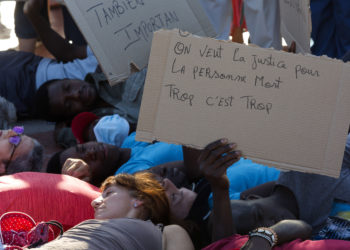 También
Importan
On veut la Justice pour
La personne Mort
Trop c'est Trop